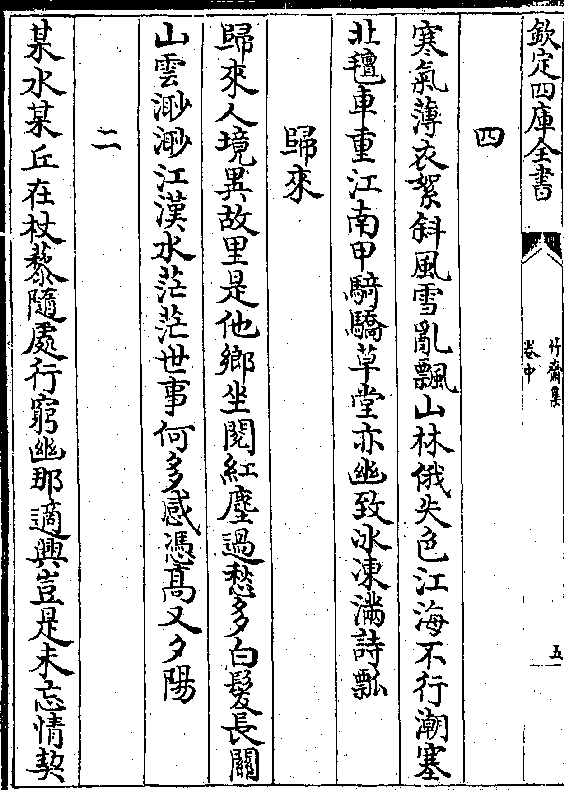 欽定四庫全書
竹齋集
卷中
五
四
寒氣薄衣絮斜風雪亂飄山林俄失色江海不行潮塞
北氊車重江南甲騎驕草堂亦幽致冰凍滿詩瓢
歸來
歸來人境異故里是他鄉坐閱紅塵過愁多白髮長關
山雲渺渺江漢水茫茫世事何多感憑高又夕陽
二
某水某丘在杖藜隨處行窮幽那適興豈是未忘情契